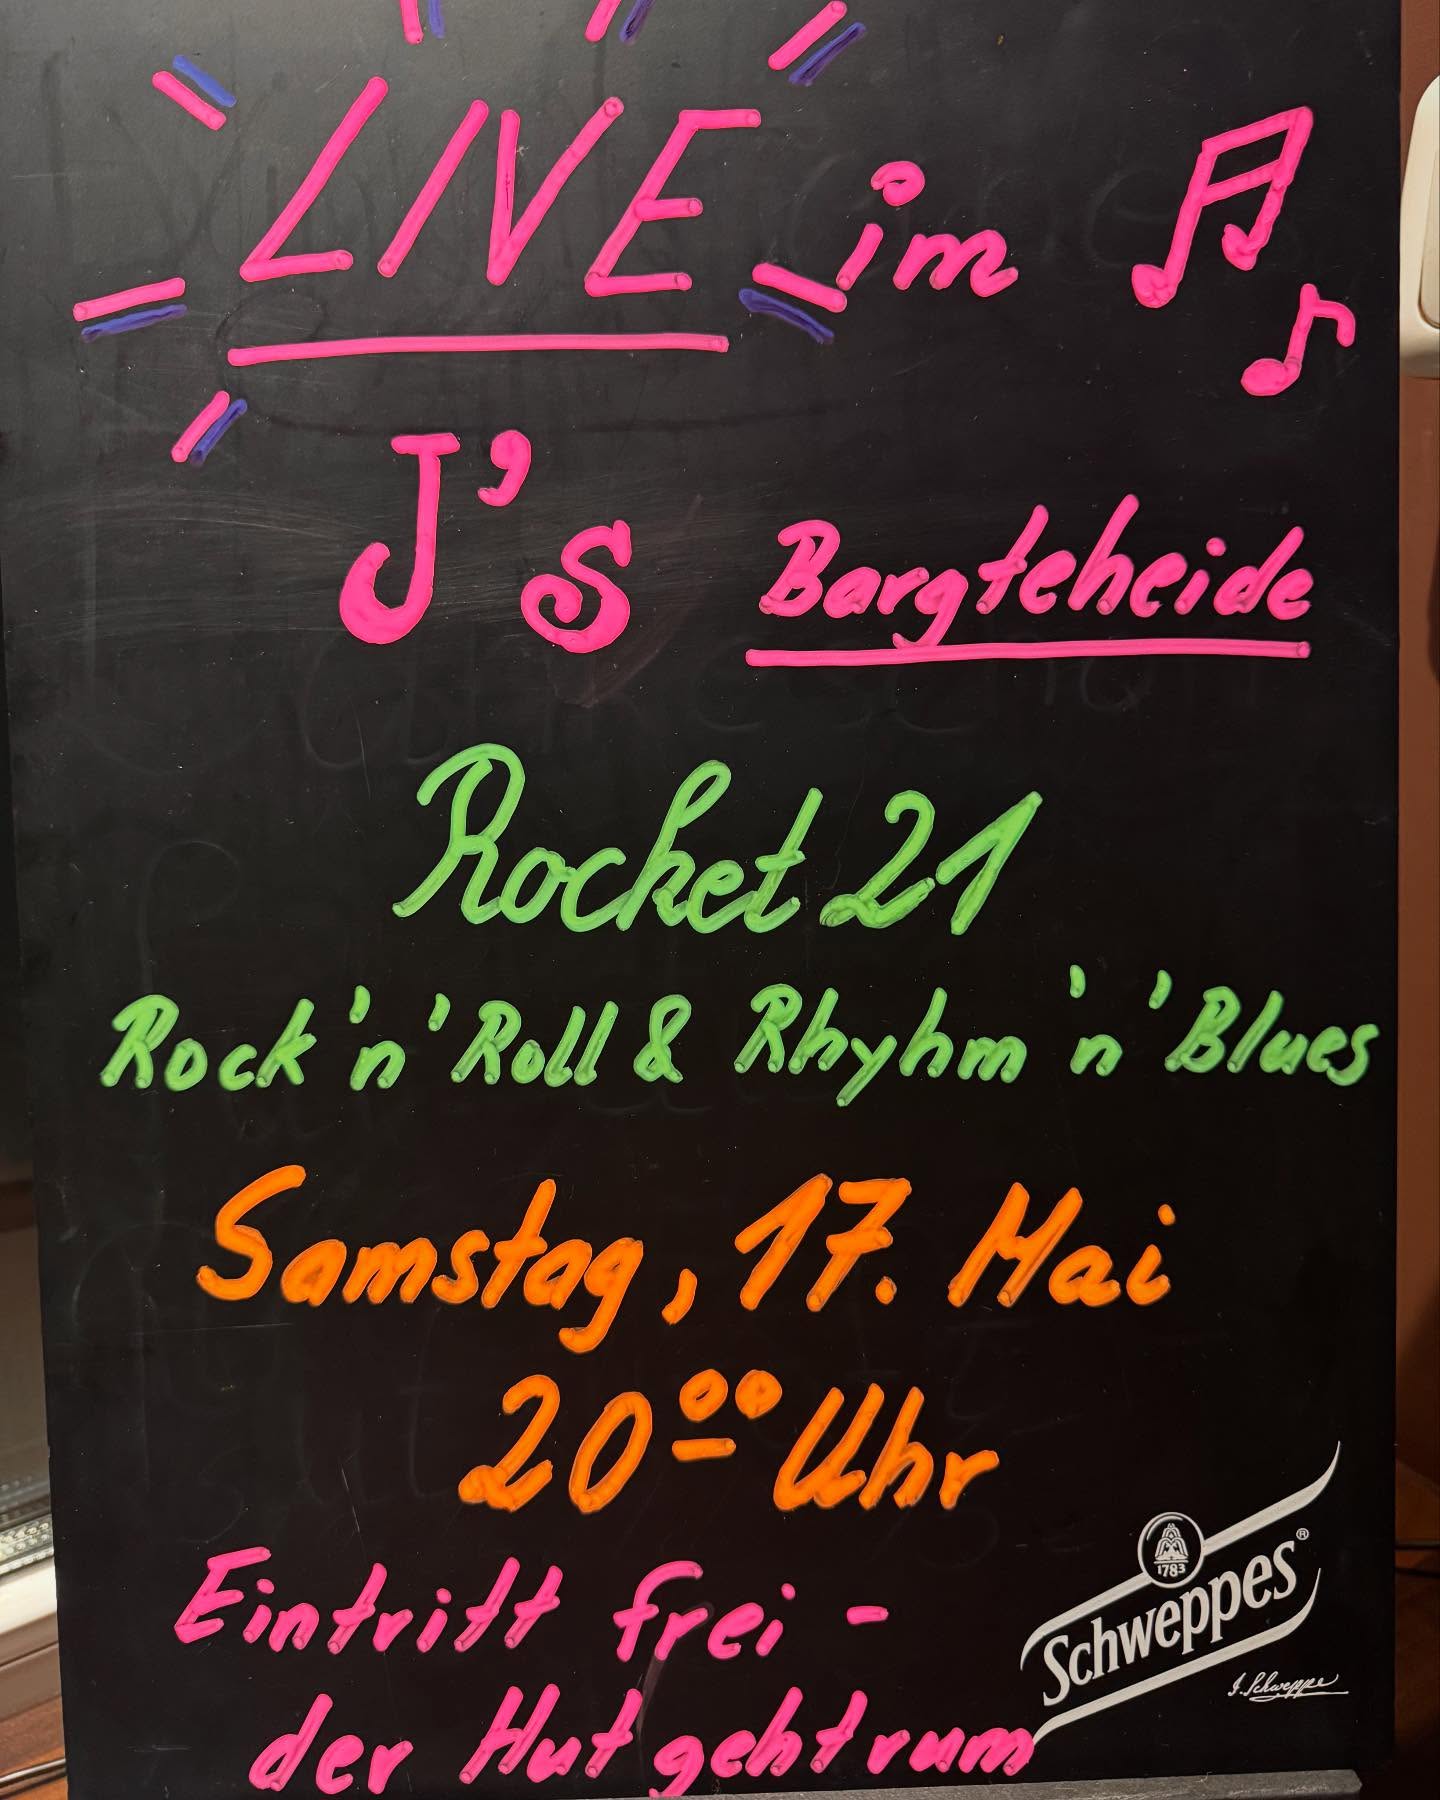 LIVE im
J's Bargteheide
Rocket 21
Rock 'n' Roll & Rhyhm 'n' Blues
Samstag, 17. Mai
20ºº Uhr
Eintritt frei -
der Hut geht rum
1783
Schweppes®
J. Schweppe